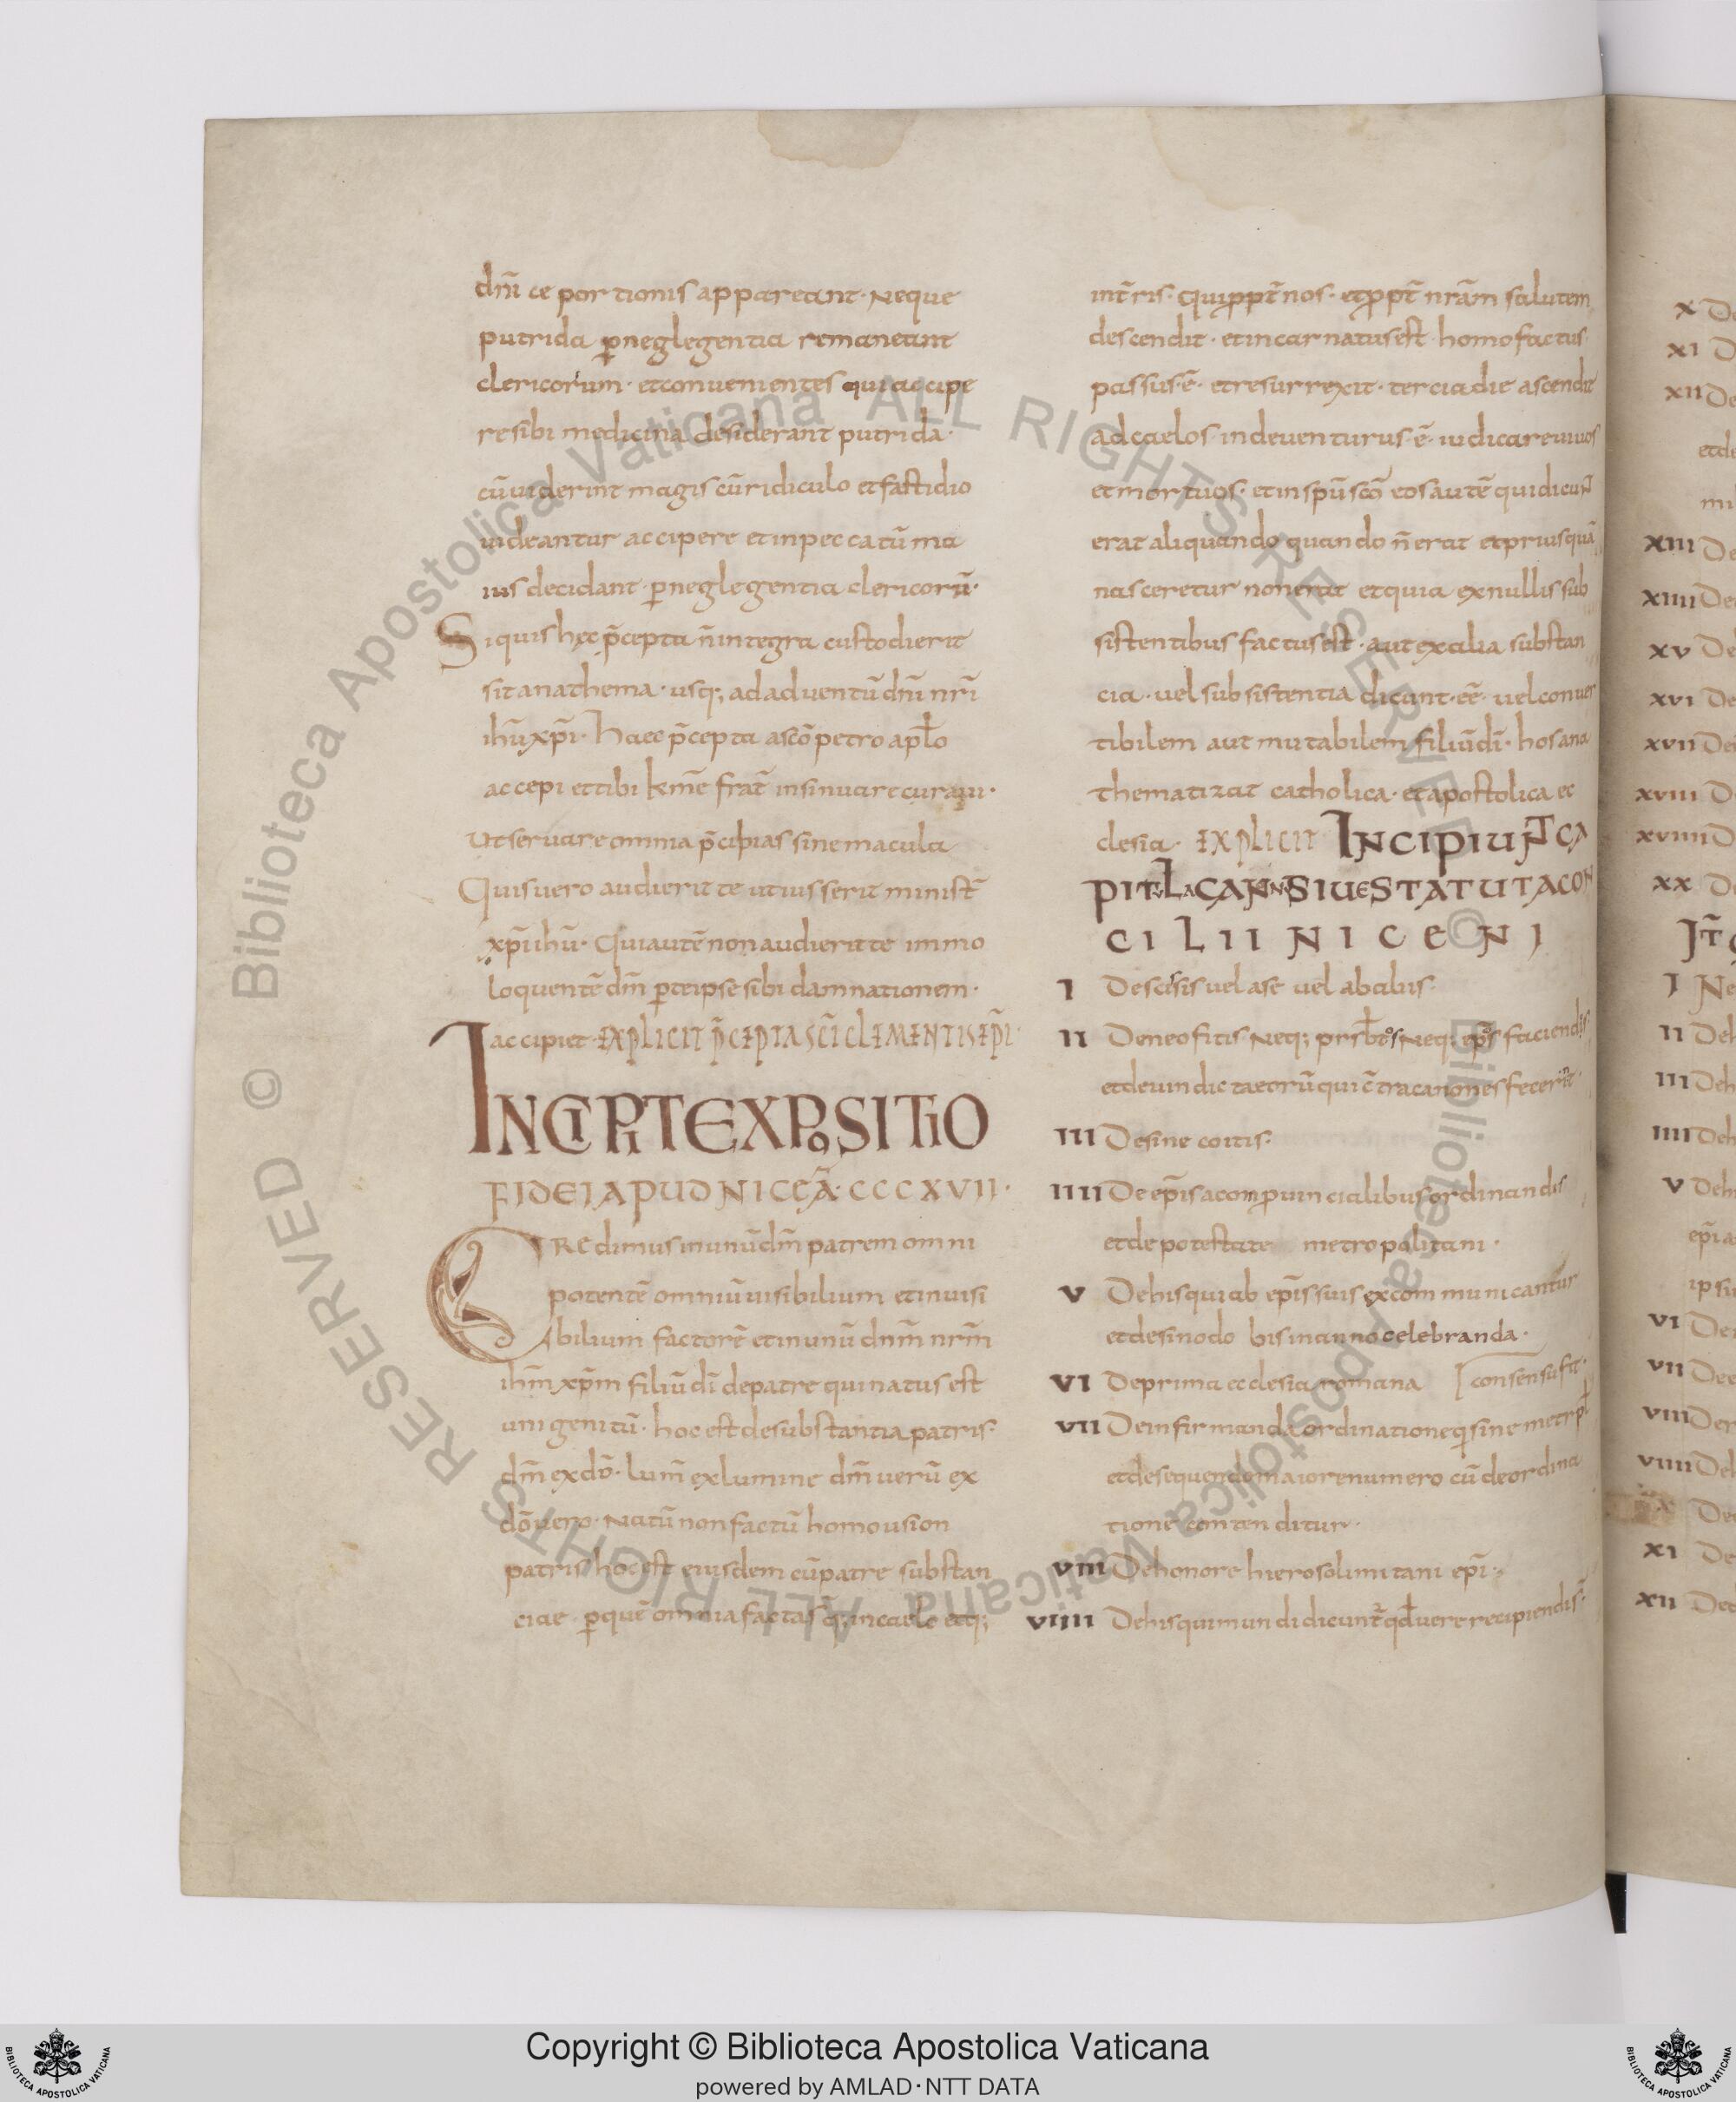 dñi ce portionis appareant· Neque
putrida ꝑneglegentia remaneant
clericorum· et conuenientes qui accipe
re sibi medicina desiderant putrida·
cū uiderint magis cū ridiculo et fastidio
uideantur accipere et in peccatū ma
ius decidant· ꝑ neglegentia clericorū·
Si quis hęc p̄cepta ñ integra custodierit
sit anathema· usq; ad aduentū dñi nr̄i
ihū xp̄i· haec p̄cepta a sc̄o petro apl̄o
accepi et tibi km̄e frat̄ insinuare curaui·
ut seruare omnia p̄cipias sine macula
Quis uero audierit te ut ius serit minist̄
xp̄i ihū· Qui autē non audierit te immo
loquentē dm̄ ꝑ te ipse sibi damnationem·
accipiet· EXPLICIT P̄CEPTA SC̄I CLEMENTIS EP̄I
INCIPIT EXPOSITIO
FIDEI APUD NICEĀ· CCCXVII·
CREdimus in unū dm̄ patrem omni
potentē omniū uisibilium et inuisi
bilium factorē et in unū dnm̄ nrm̄
ihm̄ xp̄m filiū dī de patre qui natus est
uni genitū· hoc est de substantia patris·
dm̄ ex dō· lum̄ ex lumine dm̄ uerū ex
dō uero· Natū non factū homousion
patris hoc est eiusdem cū patre substan
ciae· ꝑ quē omnia facta s̄ q̄ in caelo et q;
int̄ris· qui ꝓpt̄ nos· et ꝓpt̄ nrām salutem
descendit· et incarnatus est homo factus·
passus·ē· et resurrexit· tercia die ascendit
ad caelos· inde uenturus·ē· iudicare uiuos
et mortuos· et in spū scō eos autē qui dicunt
erat aliquando quando ñ erat et prius quā
nasceretur non erat et quia ex nullis sub
sistentibus factus est· aut ex alia substan
cia· uel subsistentia dicunt·eē· uel conuer
tibilem aut mutabilem filiū dī· hos ana
thematizat catholica· et apostolica ec
clesia· EXPLICIT INCIPIUNT CA
PITULA CANON SIUE STATUTA CON
CILII NICENI
I De scisis uel a se uel ab aliis·
II De neofitis· Neq; prsb̄tos Neq; ep̄os faciendis
et de uindicta eorū qui c̄tra canones fecerit·
III De sine coitis·
IIII De ep̄is a conprouincialibus ordinandis
et de potestate metropolitani·
V De his qui ab ep̄is suis excommunicantur
et de sinodo bis in anno celebranda·
VI De prima ecclesia romana [consensu fit·
VII De infirmanda ordinatione q̄ sine metrpl̄
et de sequendo maiore numero cū de ordina
tione contenditur·
VIII De honore hierosolimitani ep̄i·
VIIII De his qui mundi dicunt̄ qd̄ uere recipiendis·
X De
XI D
XII De
et de
mi
XIII De
XIIII De
XV De
XVI De
XVII De
XVIII D
XVIIII D
XX De
IT̄
I Ne
II Deh
III Deh
IIII Deh
V Deh
ep̄i
ipsi
VI De
VII De
VIII De
VIIII Deh
De
XI De
XII De
Biblioteca Apostolica Vaticana ALL RIGHTS RESERVED © Biblioteca Apostolica Vaticana ALL RIGHTS RESERVED ©
Copyright © Biblioteca Apostolica Vaticana
powered by AMLAD·NTT DATA
BIBLIOTECA APOSTOLICA VATICANA
BIBLIOTECA APOSTOLICA VATICANA